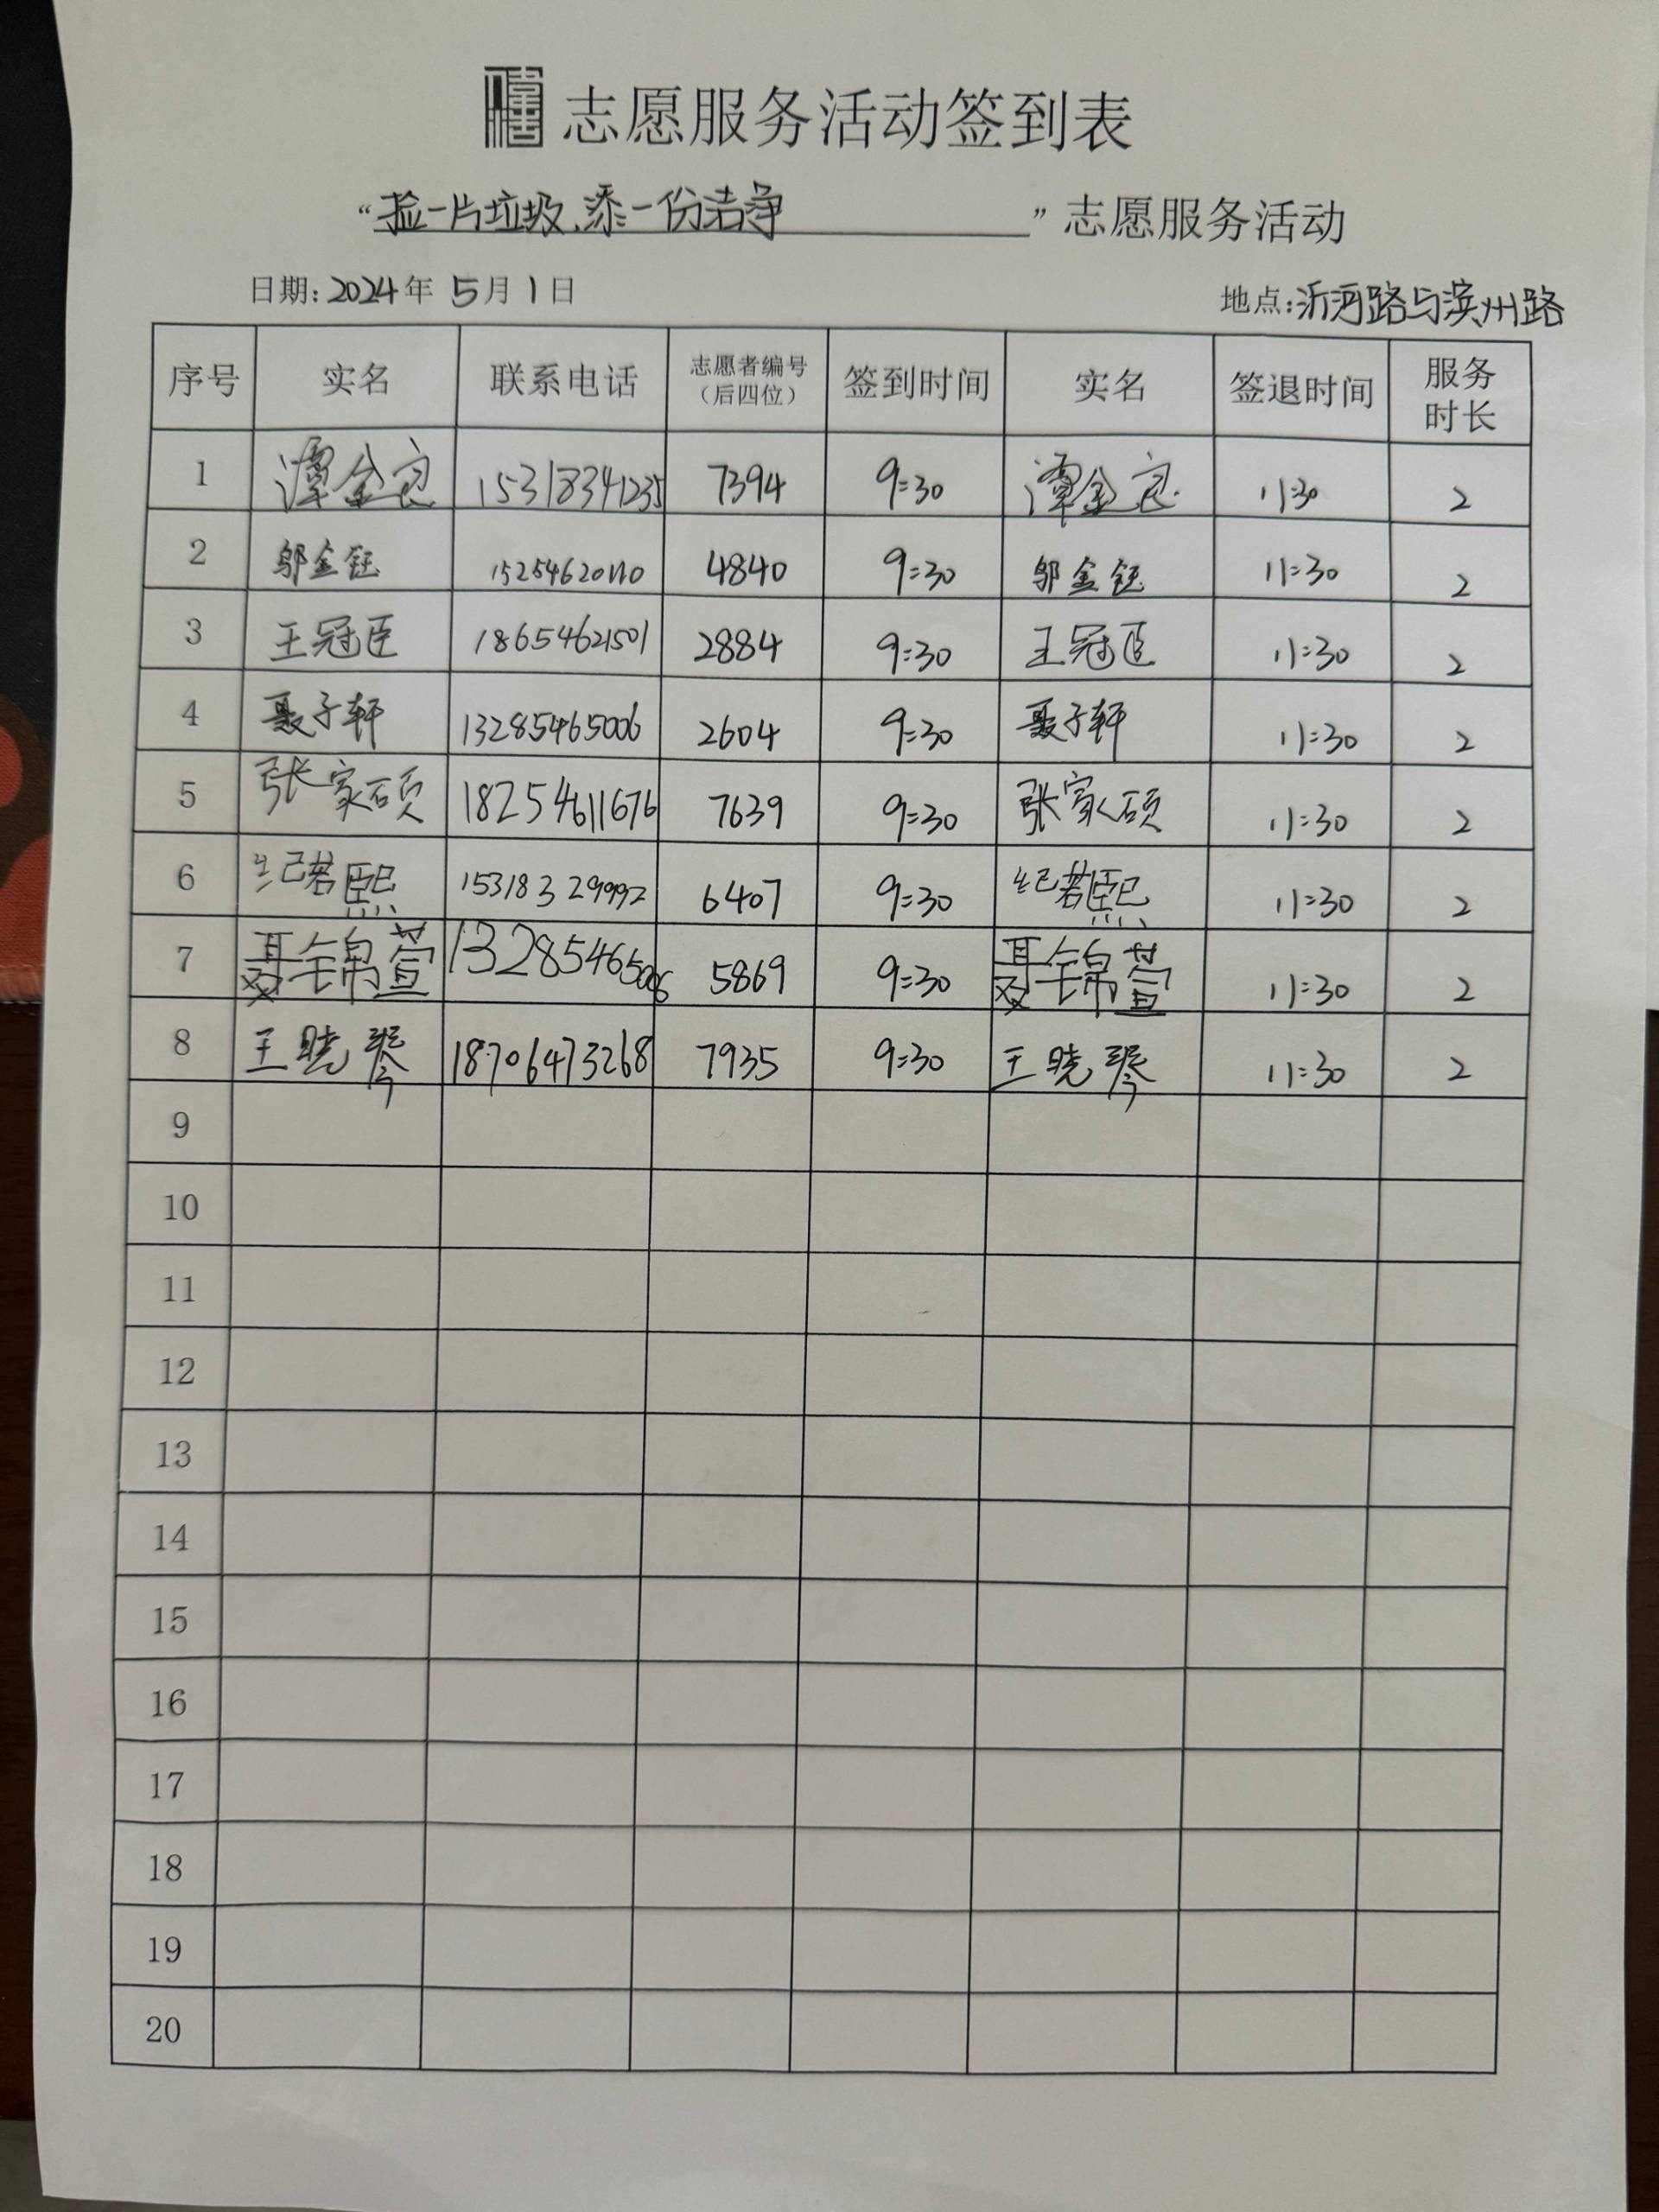 志愿服务活动签到表
“捡一片垃圾,添一份洁净”志愿服务活动
日期:2024年5月1日 地点:沂河路与滨州路
序号 实名 联系电话 志愿者编号(后四位) 签到时间 实名 签退时间 服务时长
1 谭金良 15318341235 7394 9:30 谭金良 11:30 2
2 邬金钰 4840 9:30 邬金钰 11:30 2
3 王冠臣 18654621501 2884 9:30 王冠臣 11:30 2
4 聂子轩 13285465006 2604 9:30 聂子轩 11:30 2
5 张家硕 18254611676 7639 9:30 张家硕 11:30 2
6 纪若熙 15318329992 6407 9:30 纪若熙 11:30 2
7 聂锦萱 13285465006 5869 9:30 聂锦萱 11:30 2
8 王晓琴 18706473268 7935 9:30 王晓琴 11:30 2
9
10
11
12
13
14
15
16
17
18
19
20